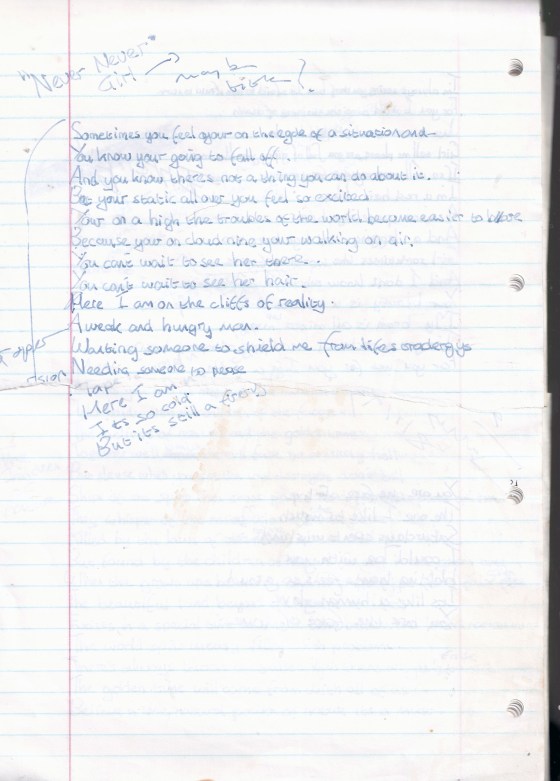 "Never Never"
Girl → maybe
title?
Sometimes you feel your on the egde of a situation and
You know your going to fall off.
And you know theres not a thing you can do about it.
But your static all over you feel so excited
Your on a high the troubles of the world become easier to
Because your on cloud nine your walking on air.
You can't wait to see her there.
You can't wait to see her hair.
Here I am on the cliffs of reality.
A weak and hungry man.
Wanting someone to shield me from lifes
Needing someone to
Here I am
Its so cold
But its still a